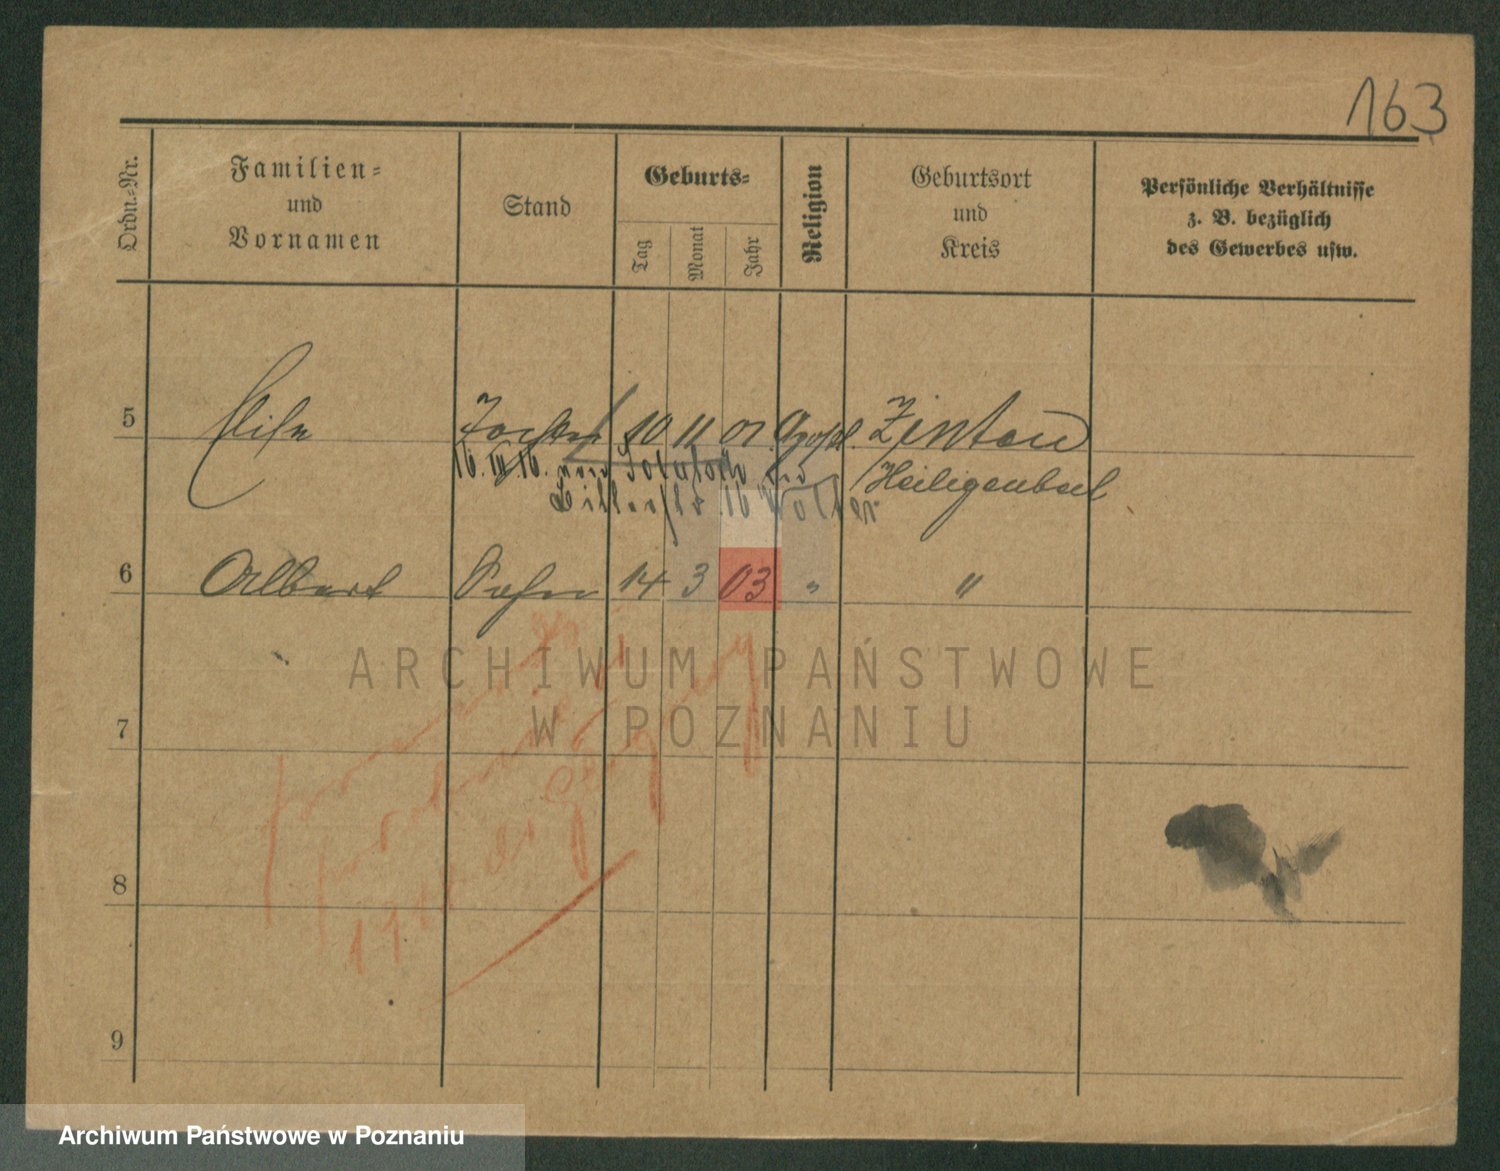 163
Ordn.-Nr.
Familien-
und
Vornamen
Stand
Geburts-
Tag
Monat
Jahr
Religion
Geburtsort
und
Kreis
Persönliche Verhältnisse
z. B. bezüglich
des Gewerbes usw.
5 Elise Tochter 10 11 01 Evgl. Zinten
16. III 16. Heiligenbeil
6 Albert Sohn 14 3 03 " "
ARCHIWUM PAŃSTWOWE
W POZNANIU
7
8
9
Archiwum Państwowe w Poznaniu